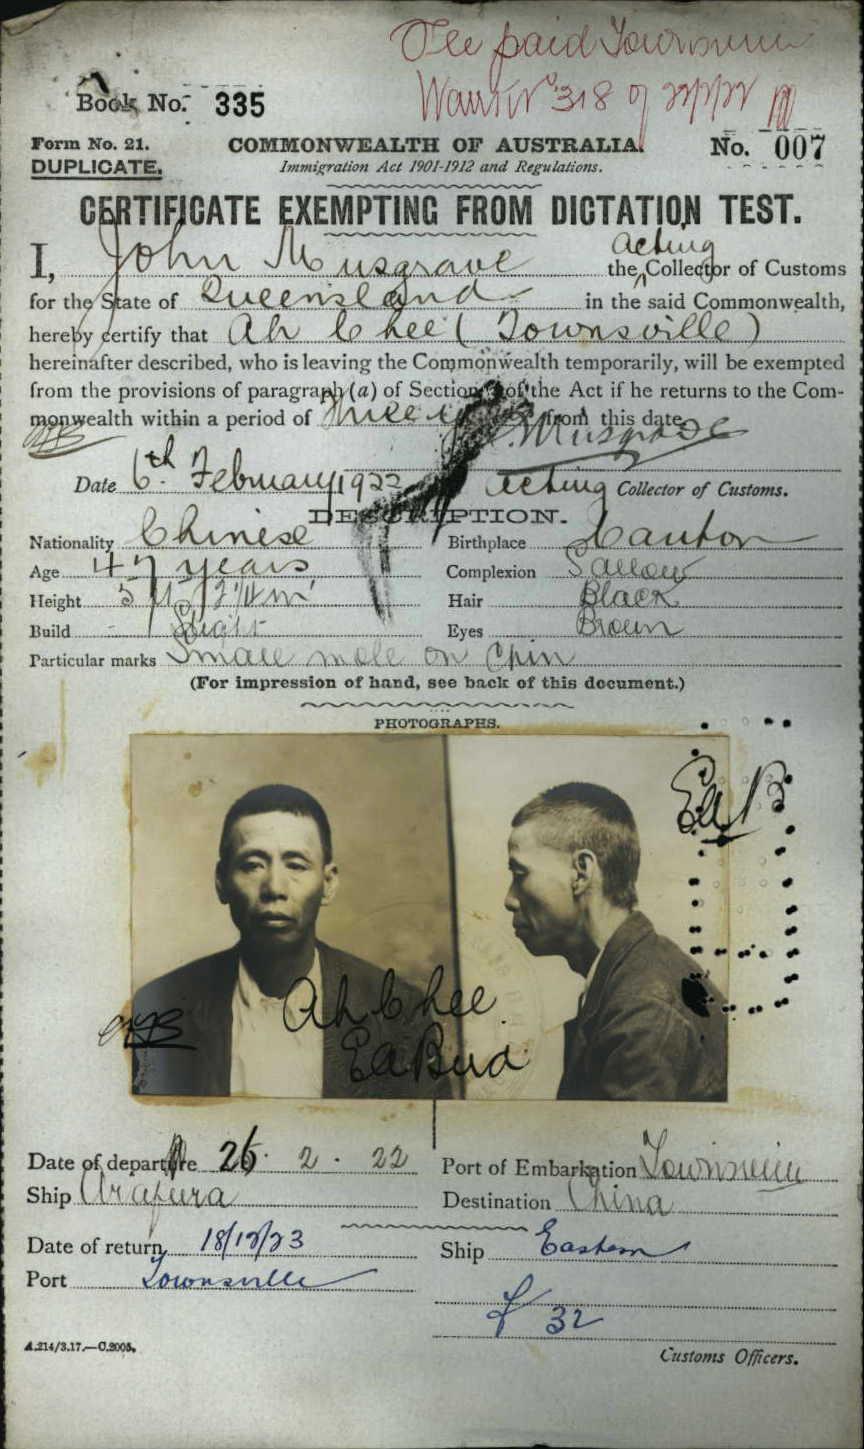 Fee paid Townsville
Book No. 335
Form No. 21. COMMONWEALTH OF AUSTRALIA. No. 007
DUPLICATE. Immigration Act 1901-1912 and Regulations.
CERTIFICATE EXEMPTING FROM DICTATION TEST.
I, John Musgrave the acting Collector of Customs
for the State of Queensland in the said Commonwealth,
hereby certify that Ah Chee (Townsville)
hereinafter described, who is leaving the Commonwealth temporarily, will be exempted
from the provisions of paragraph (a) of Section of the Act if he returns to the Com-
monwealth within a period of Three from this date.
Musgrave
Date 6th February 1922 Acting Collector of Customs.
DESCRIPTION.
Nationality Chinese Birthplace Canton
Age 47 years Complexion Sallow
Height 5 Hair Black
Build Slight Eyes Brown
Particular marks Small mole on Chin
(For impression of hand, see back of this document.)
PHOTOGRAPHS.
EaB
Ah Chee
Date of departure 26. 2. 22 Port of Embarkation Townsville
Ship Arafura Destination China
Date of return 18/12/23 Ship Eastern
Port Townsville
32
A.214/3.17.—C.2005. Customs Officers.